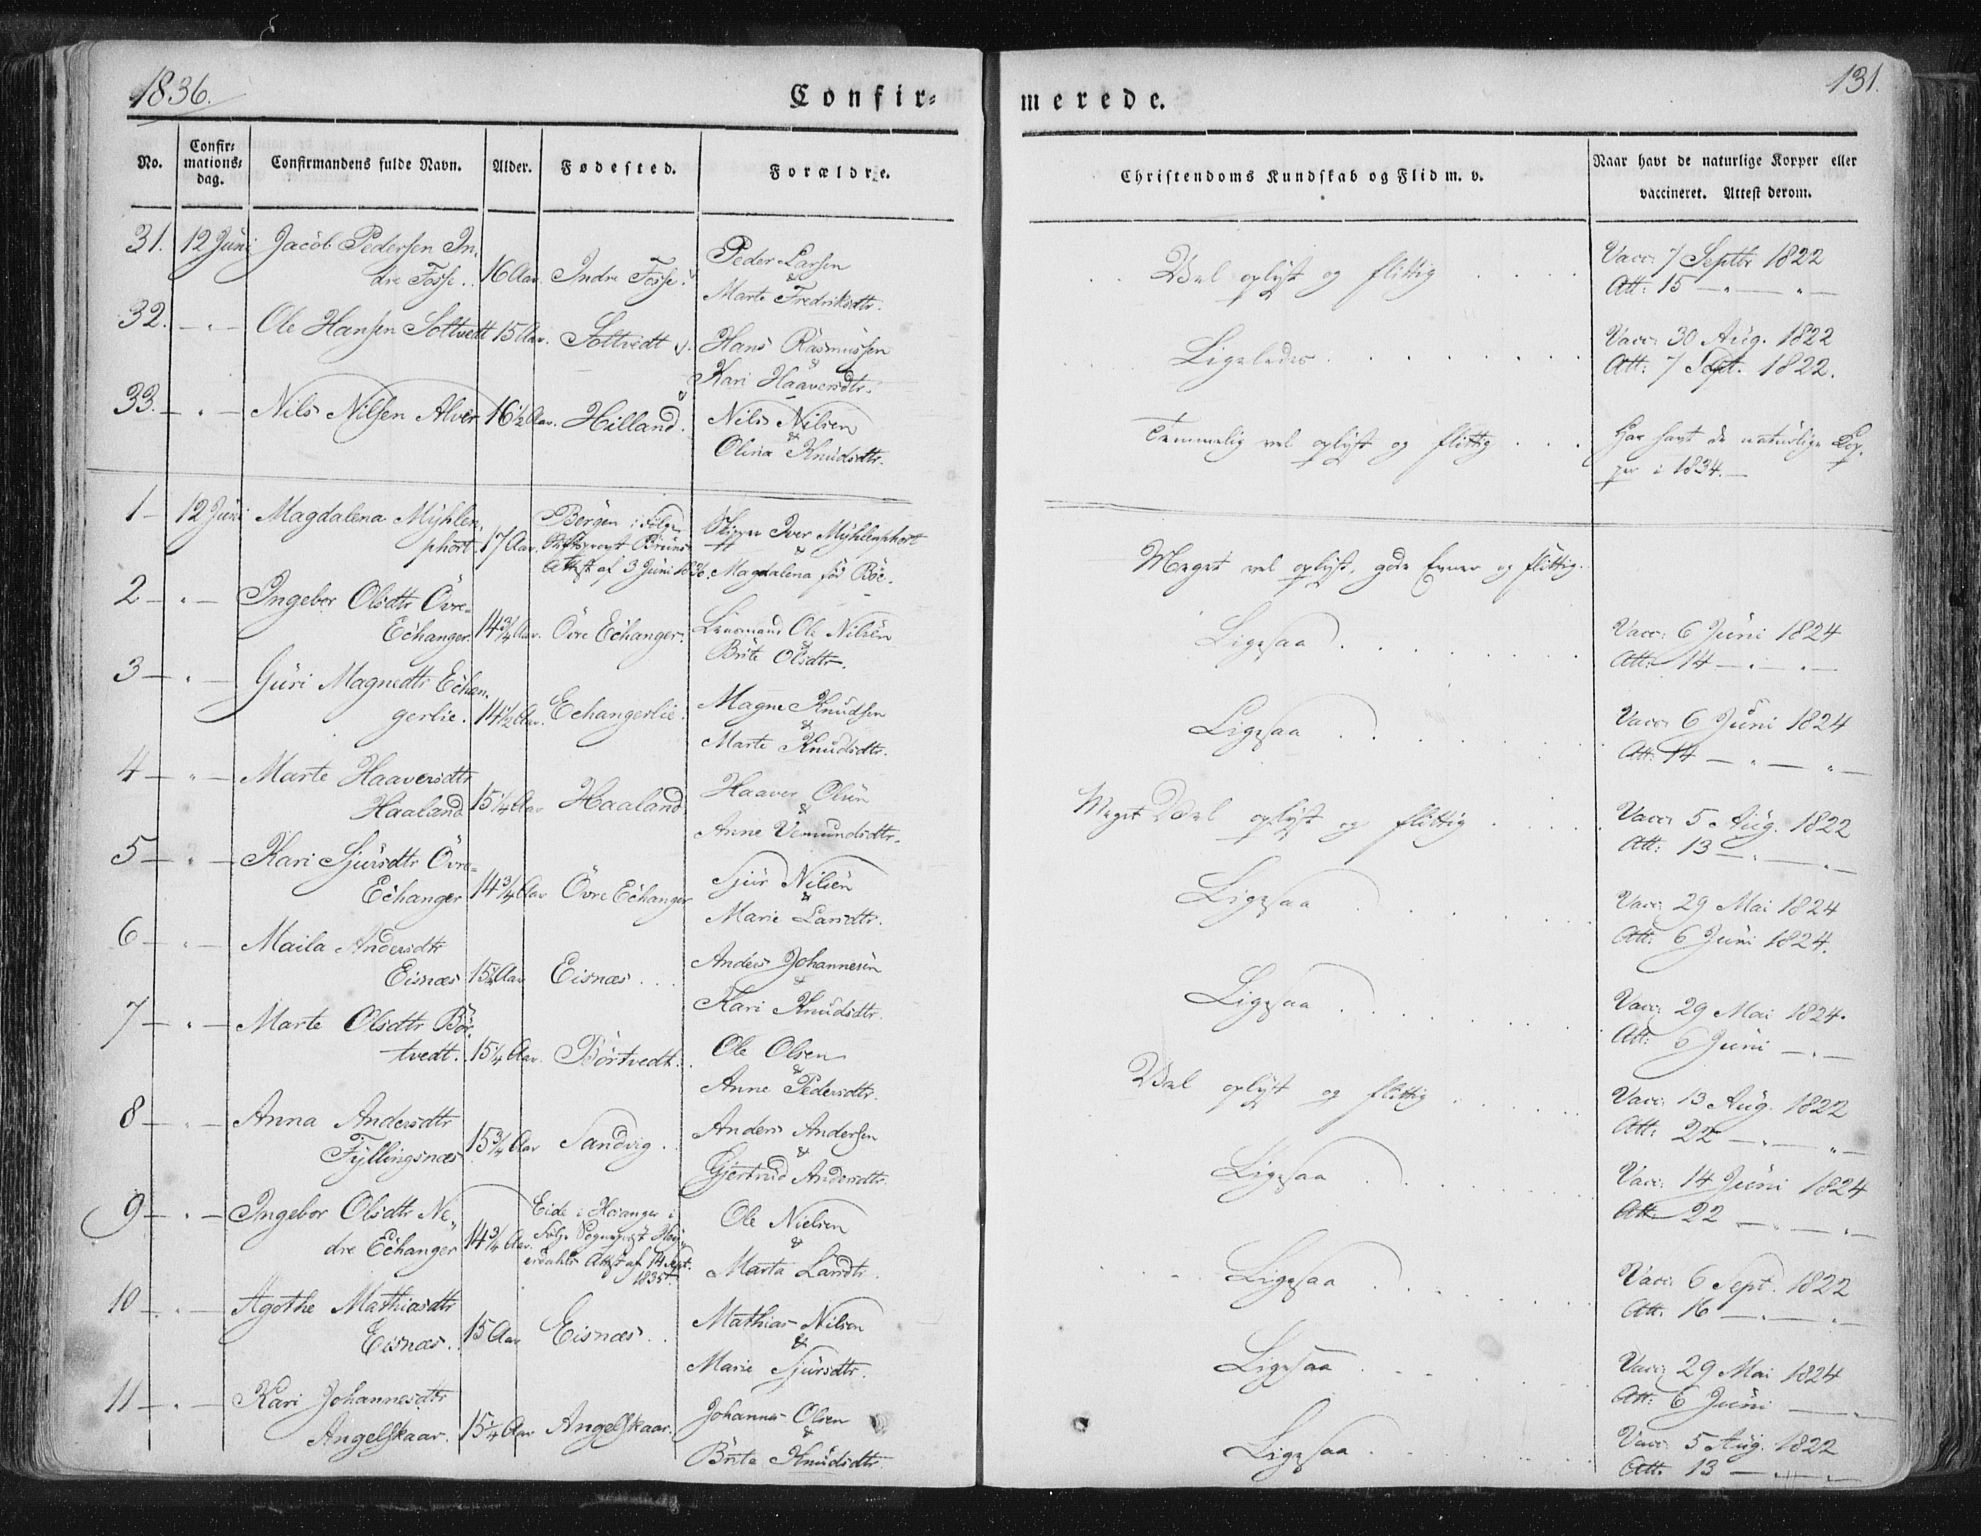 1836.
131.
Confir=
merede.
No.
Confir=
mations=
dag.
Confirmandens fulde Navn.
Alder.
Fødested.
Forældre.
Christendoms Kundskab og Flid m. v.
Naar havt de naturlige Kopper eller
vaccineret. Attest derom.
31. 12 Juni Jacob Pedersen In-
dre Fosse. 16 Aar. Indre Fosse. Peder Larsen
&
Marte Fredriksdtr.
Vel oplyst og flittig
Vacc: 7 Septbr 1822
Att: 15 — " — " —
32. — " — Ole Hansen Soltvedt 15 Aar. Soltvedt Hans Rasmussen
&
Kari Haaversdtr.
Ligeledes
Vacc: 30 Aug. 1822
Att: 7 Sept. 1822.
33. — " — Nils Nilsen Alver 16½ Aar. Hilland. Nils Nilsen
&
Olina Knudsdtr.
Temmelig vel oplyst og flittig
Har havt de naturlige Kop-
per i 1834.
1 — 12 Juni Magdalena Myhlen-
phort 17 Aar. Bergen i Følge
Stiftsprovst Bruns
Attest af 3 Juni 1836. Skipper Iver Myhlenphort
&
Magdalena før Böe.
Meget vel oplyst, gode Evner og flittig.
2 — " — Ingebor Olsdtr Övre-
Echanger 14¾ Aar. Övre Echanger. Lensmand Ole Nilsen
&
Brite Olsdtr.
Ligesaa
Vacc: 6 Juni 1824
Att: 14 — " — " —
3 — " — Guri Magnedtr Echan-
gerlie. 14½ Aar. Echangerlie. Magne Knudsen
&
Marte Knudsdtr.
Ligesaa
Vacc: 6 Juni 1824
Att: 14 — " — " —
4 — " — Marte Haaversdtr
Haaland 15¼ Aar Haaland Haaver Olsen
&
Anne Vemundsdtr.
Meget Vel oplyst og flittig
Vacc: 5 Aug. 1822
Att: 13 — " — " —
5 — " — Kari Sjursdtr Övre-
Echanger 14¾ Aar Övre Echanger Sjur Nilsen
&
Marie Larsdtr.
Ligesaa
Vacc: 29 Mai 1824
Att: 6 Juni 1824.
6 — " — Maila Andersdtr
Eisnæs 15¼ Aar Eisnæs Anders Johannesen
&
Kari Knudsdtr.
Ligesaa
Vacc: 29 Mai 1824.
Att: 6 Juni — " —
7 — " — Marte Olsdtr Bör-
tvedt. 15¼ Aar. Börtvedt. Ole Olsen
&
Anne Pedersdtr.
Vel oplyst og flittig
Vacc: 13 Aug. 1822
Att: 22 — " — " —
8 — " — Anna Andersdtr
Fyllingsnæs 15¾ Aar Sandvig. Anders Andersen
&
Gjertrud Andersdtr.
Ligesaa
Vacc: 14 Juni 1824
Att: 22 — " — " —
9 — " — Ingebor Olsdtr Ne-
dre Echanger 14¾ Aar. Eide i Hosanger i
Følge Sogneprest
Attest af 14 Sept.
1835. Ole Nielsen
&
Marta Larsdtr.
Ligesaa
Vacc: 6 Sept. 1822
Att: 16 — " — " —
10 — " — Agothe Mathiasdtr
Eisnæs. 15 Aar Eisnæs. Mathias Nilsen
&
Marie Sjursdtr.
Ligesaa
Vacc: 29 Mai 1824
Att: 6 Juni — " —
11 — " — Kari Johannesdtr
Angelskaar. 15¼ Aar Angelskaar. Johannes Olsen
&
Brita Knudsdtr.
Ligesaa
Vacc: 5 Aug. 1822
Att. 13 — " — " —